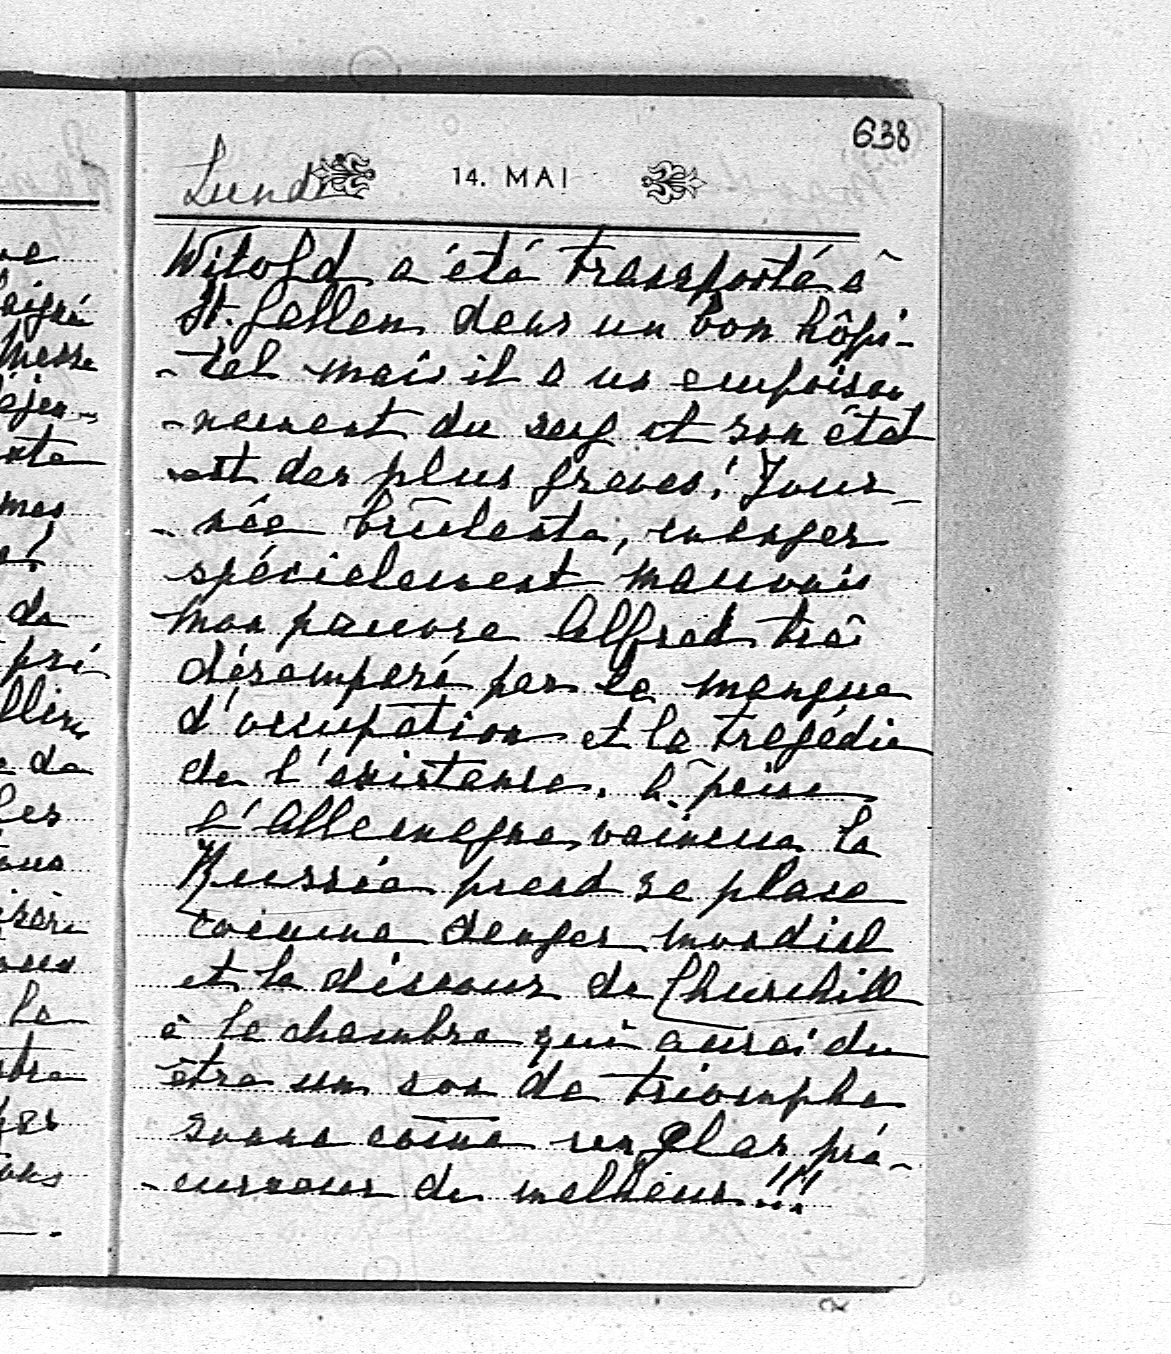 638
Lundi 14. MAI
Witold a été transporté à
St. Gallen dans un bon hôpi-
-tal mais il a un empoison
-nement du sang et son état
est des plus graves! Jour-
-née brûlante, manger
spécialement mauvais
mon pauvre Alfred très
désemparé par le manque
d'occupation et la tragédie
de l'existence. À peine
l'Allemagne vaincue la
Russie prend sa place
comme danger mondial
et le discours de Churchill
à la chambre qui aurai du
être un son de triomphe
sonne come un glas pré-
-curseur de malheur!!!